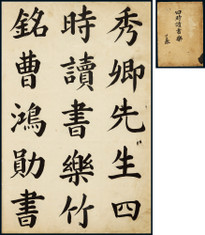 秀卿先生四
時讀書樂竹
銘曹鴻勛書
四時讀書樂